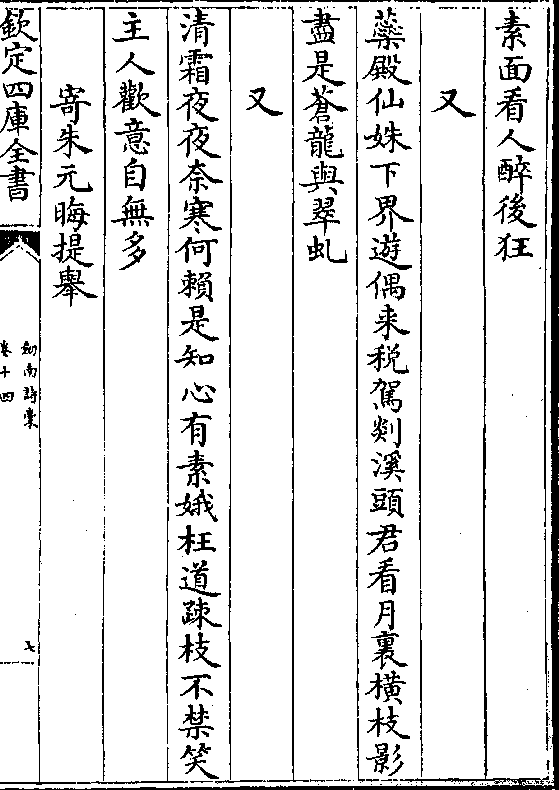 素面看人醉後狂
又
蘂殿仙姝下界遊偶来税駕剡溪頭君看月裏横枝影
盡是蒼龍與翠虬
又
清霜夜夜奈寒何賴是知心有素娥枉道疎枝不禁笑
主人歡意自無多
寄朱元晦提舉
欽定四庫全書
劒南詩稾
卷十四
七